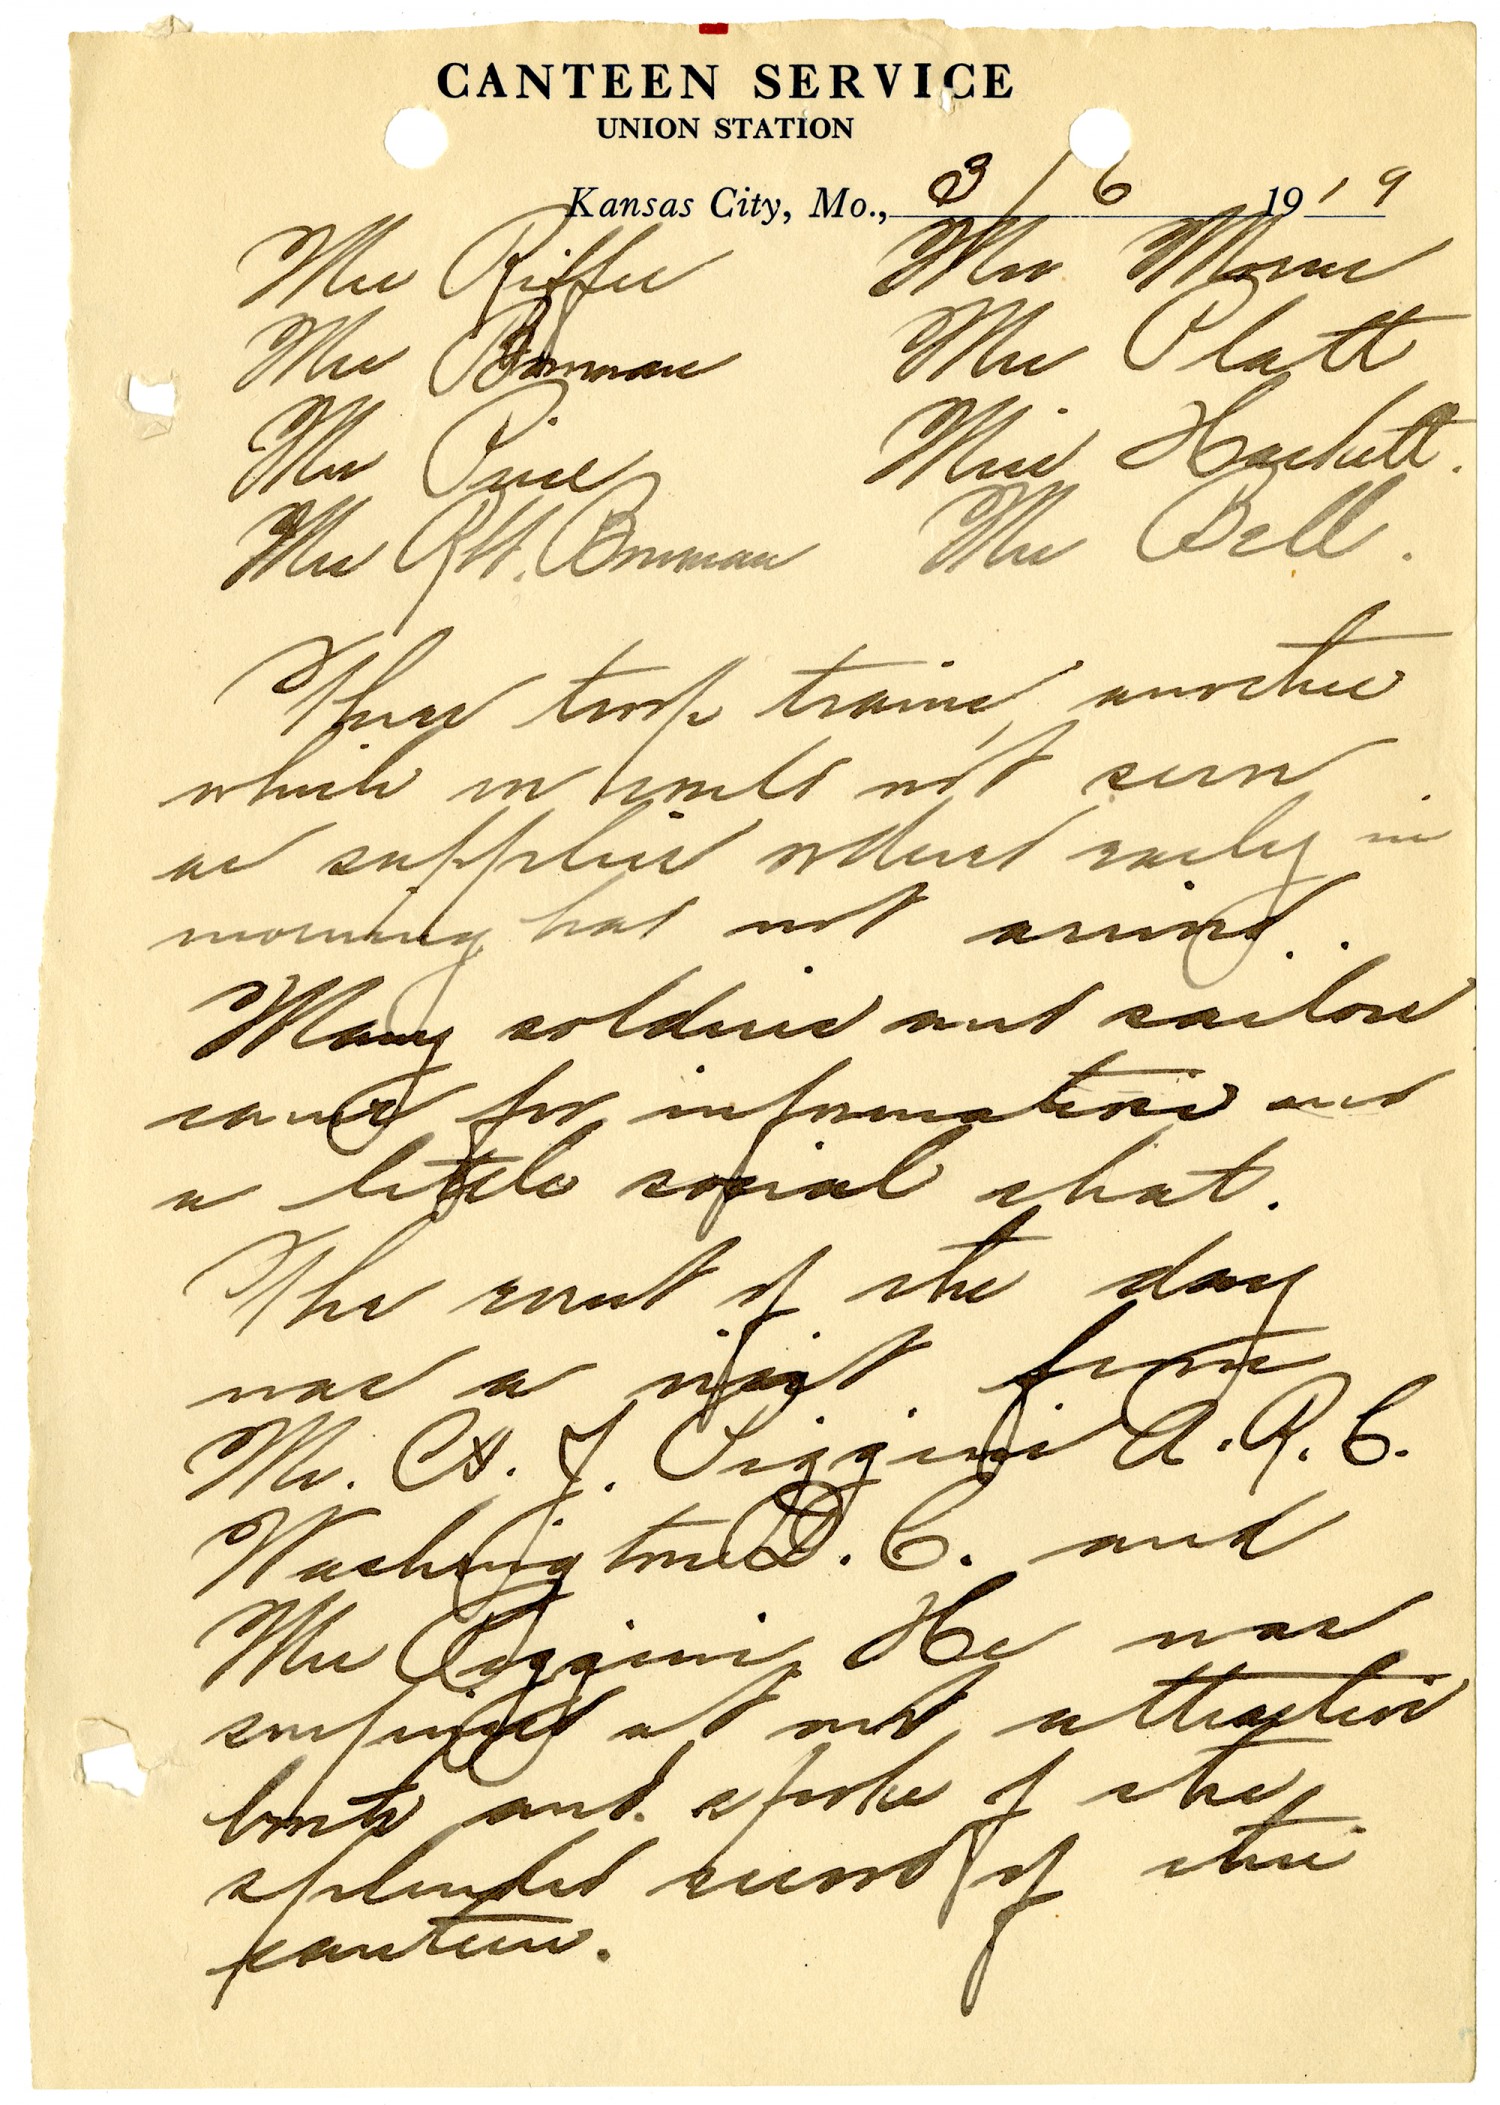 CANTEEN SERVICE
UNION STATION
Kansas City, Mo., 3/6 1919
Mrs Riffee Mrs Morse
Mrs Bowman Mrs Platt
Mrs Price Miss Hackett.
Mrs R.H. Bowman Mrs Bell.
Three troop trains, another
which we could not serve
as supplies ordered early in
morning had not arrived.
Many soldiers and sailors
came for information and
a little social chat.
The event of the day
was a visit from
Mr. H. J. Piggins A. R. C.
Washington D. C. and
Mrs Piggins. He was
surprised at our attractive
booth and spoke of the
splendid record of this
canteen.